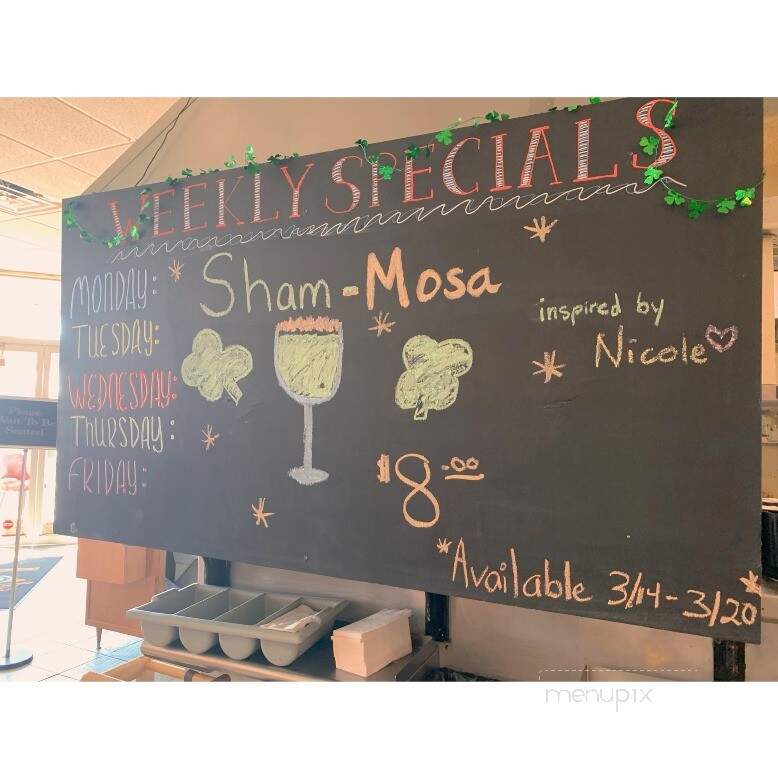 WEEKLY SPECIALS
Sham-Mosa
MONDAY:
TUESDAY:
WEDNESDAY:
THURSDAY:
FRIDAY:
inspired by
Nicole
$8.00
*Available 3/14-3/20*
Please
Wait To Be
Seated
menupix